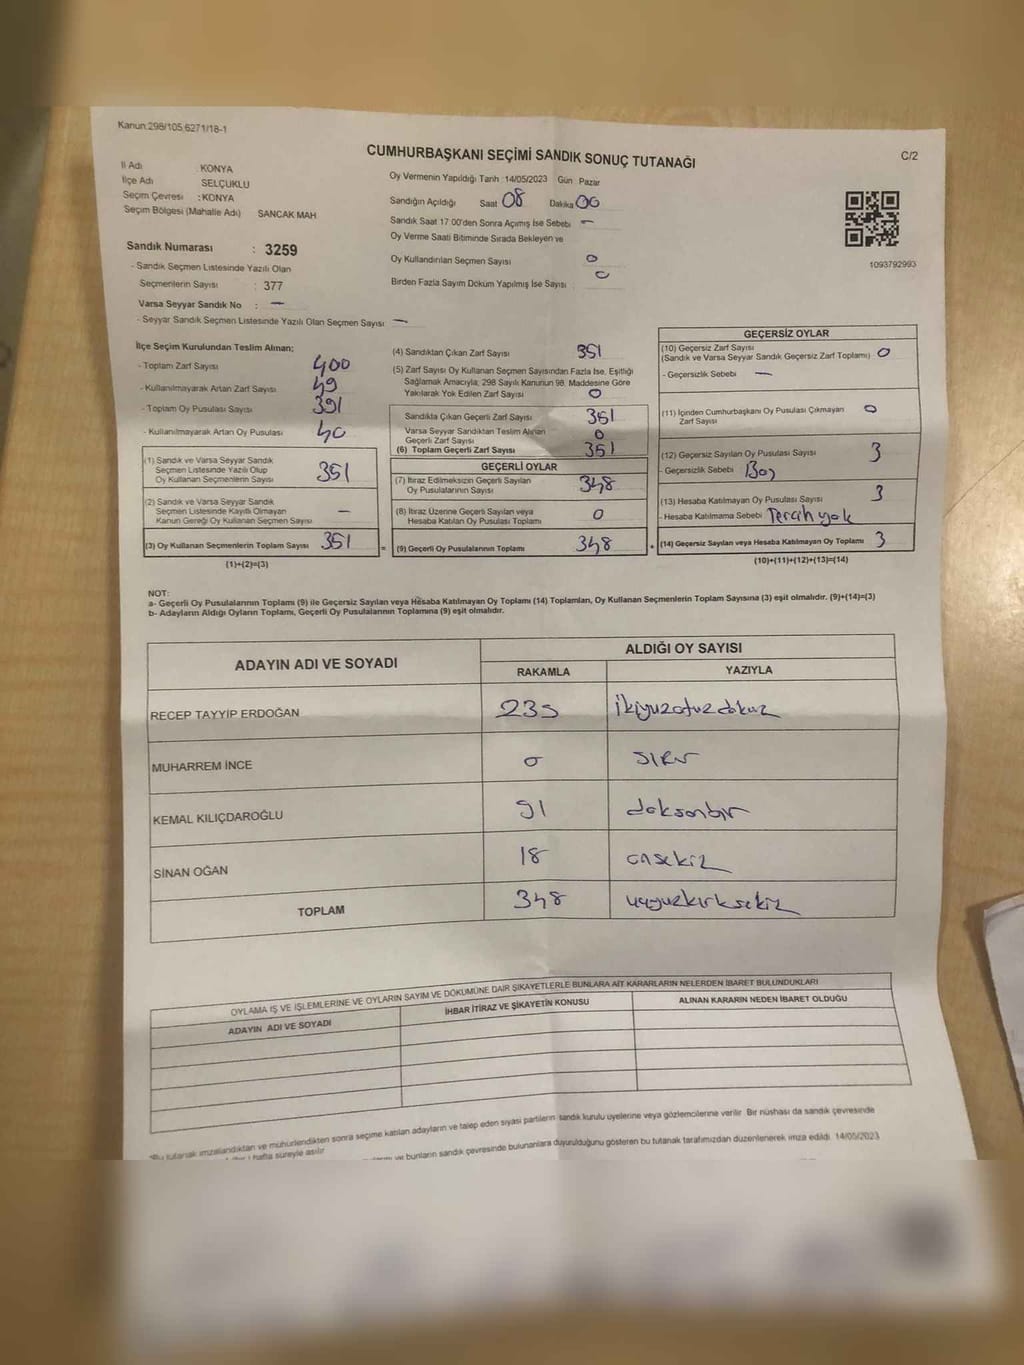 Kanun.298/105,6271/18-1
CUMHURBAŞKANI SEÇİMİ SANDIK SONUÇ TUTANAĞI
C/2
İl Adı : KONYA
İlçe Adı SELÇUKLU
Seçim Çevresi : KONYA
Seçim Bölgesi (Mahalle Adı) SANCAK MAH
Sandık Numarası : 3259
- Sandık Seçmen Listesinde Yazılı Olan
Seçmenlerin Sayısı : 377
Varsa Seyyar Sandık No : —
- Seyyar Sandık Seçmen Listesinde Yazılı Olan Seçmen Sayısı —
Oy Vermenin Yapıldığı Tarih :14/05/2023 Gün : Pazar
Sandığın Açıldığı Saat 08 Dakika 00
Sandık Saat 17:00'den Sonra Açımış İse Sebebi —
Oy Verme Saati Bitiminde Sırada Bekleyen ve
Oy Kullandırılan Seçmen Sayısı 0
Birden Fazla Sayım Döküm Yapılmış İse Sayısı 0
1093792993
İlçe Seçim Kurulundan Teslim Alınan;
- Toplam Zarf Sayısı 400
- Kullanılmayarak Artan Zarf Sayısı 49
- Toplam Oy Pusulası Sayısı 391
- Kullanılmayarak Artan Oy Pusulası 40
(1) Sandık ve Varsa Seyyar Sandık
Seçmen Listesinde Yazılı Olup
Oy Kullanan Seçmenlerin Sayısı 351
(2) Sandık ve Varsa Seyyar Sandık
Seçmen Listesinde Kayıtlı Olmayan
Kanun Gereği Oy Kullanan Seçmen Sayısı —
(3) Oy Kullanan Seçmenlerin Toplam Sayısı 351
(1)+(2)=(3)
(4) Sandıktan Çıkan Zarf Sayısı 351
(5) Zarf Sayısı Oy Kullanan Seçmen Sayısından Fazla İse, Eşitliği
Sağlamak Amacıyla; 298 Sayılı Kanunun 98. Maddesine Göre
Yakılarak Yok Edilen Zarf Sayısı 0
Sandıkta Çıkan Geçerli Zarf Sayısı 351
Varsa Seyyar Sandıktan Teslim Alınan
Geçerli Zarf Sayısı 0
(6) Toplam Geçerli Zarf Sayısı 351
GEÇERLİ OYLAR
(7) İtiraz Edilmeksizin Geçerli Sayılan
Oy Pusulalarının Sayısı 348
(8) İtiraz Üzerine Geçerli Sayılan veya
Hesaba Katılan Oy Pusulası Toplamı 0
= (9) Geçerli Oy Pusulalarının Toplamı 348
GEÇERSİZ OYLAR
(10) Geçersiz Zarf Sayısı
(Sandık ve Varsa Seyyar Sandık Geçersiz Zarf Toplamı) 0
- Geçersizlik Sebebi —
(11) İçinden Cumhurbaşkanı Oy Pusulası Çıkmayan
Zarf Sayısı 0
(12) Geçersiz Sayılan Oy Pusulası Sayısı 3
- Geçersizlik Sebebi Boş
(13) Hesaba Katılmayan Oy Pusulası Sayısı 3
- Hesaba Katılmama Sebebi Tercih yok
+ (14) Geçersiz Sayılan veya Hesaba Katılmayan Oy Toplamı 3
(10)+(11)+(12)+(13)=(14)
NOT:
a- Geçerli Oy Pusulalarının Toplamı (9) ile Geçersiz Sayılan veya Hesaba Katılmayan Oy Toplamı (14) Toplamları, Oy Kullanan Seçmenlerin Toplam Sayısına (3) eşit olmalıdır. (9)+(14)=(3)
b- Adayların Aldığı Oyların Toplamı, Geçerli Oy Pusulalarının Toplamına (9) eşit olmalıdır.
ADAYIN ADI VE SOYADI
ALDIĞI OY SAYISI
RAKAMLA YAZIYLA
RECEP TAYYİP ERDOĞAN 239 ikiyüzotuzdokuz
MUHARREM İNCE 0 SIFIR
KEMAL KILIÇDAROĞLU 91 doksanbir
SİNAN OĞAN 18 onsekiz
TOPLAM 348 üçyüzkırksekiz
OYLAMA İŞ VE İŞLEMLERİNE VE OYLARIN SAYIM VE DÖKÜMÜNE DAİR ŞİKAYETLERLE BUNLARA AİT KARARLARIN NELERDEN İBARET BULUNDUKLARI
ADAYIN ADI VE SOYADI İHBAR İTİRAZ VE ŞİKAYETİN KONUSU ALINAN KARARIN NEDEN İBARET OLDUĞU
*Bu tutanak imzalandıktan ve mühürlendikten sonra seçime katılan adayların ve talep eden siyasi partilerin sandık kurulu üyelerine veya gözlemcilerine verilir. Bir nüshası da sandık çevresinde
hafta süreyle asılır.
ve bunların sandık çevresinde bulunanlara duyurulduğunu gösteren bu tutanak tarafımızdan düzenlenerek imza edildi. 14/05/2023